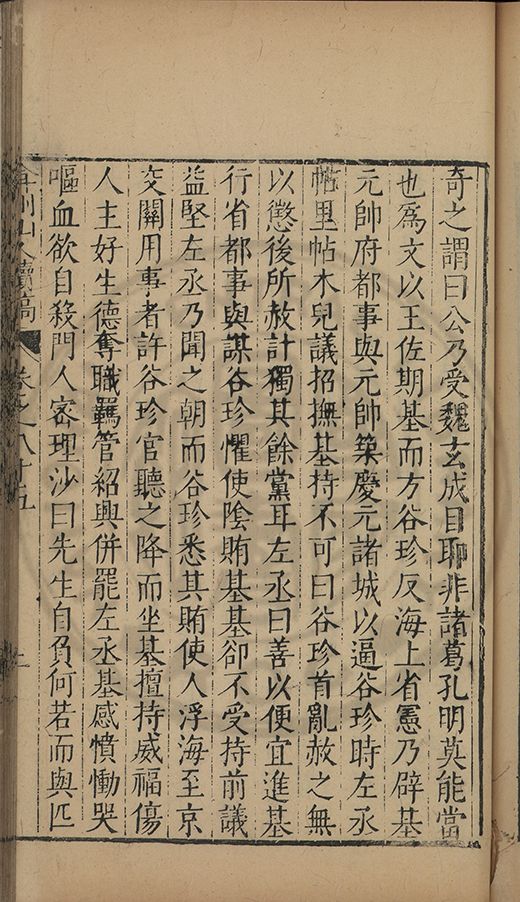 奇之謂曰公乃受魏玄成目聊非諸葛孔明莫能當
也爲文以王佐期基而方谷珍反海上省憲乃辟基
元帥府都事與元帥築慶元諸城以逼谷珍時左丞
帖里帖木兒議招撫基持不可曰谷珍首亂赦之無
以懲後所赦計獨其餘黨耳左丞曰善以便宜進基
行省都事與謀谷珍懼使陰賄基基卻不受持前議
益堅左丞乃聞之朝而谷珍悉其賄使人浮海至京
交關用事者許谷珍官聽之降而坐基擅持威福傷
人主好生德奪職羈管紹興併罷左丞基感憤慟哭
嘔血欲自殺門人密理沙曰先生自負何若而與匹
弇州山人續稿 卷之八十五